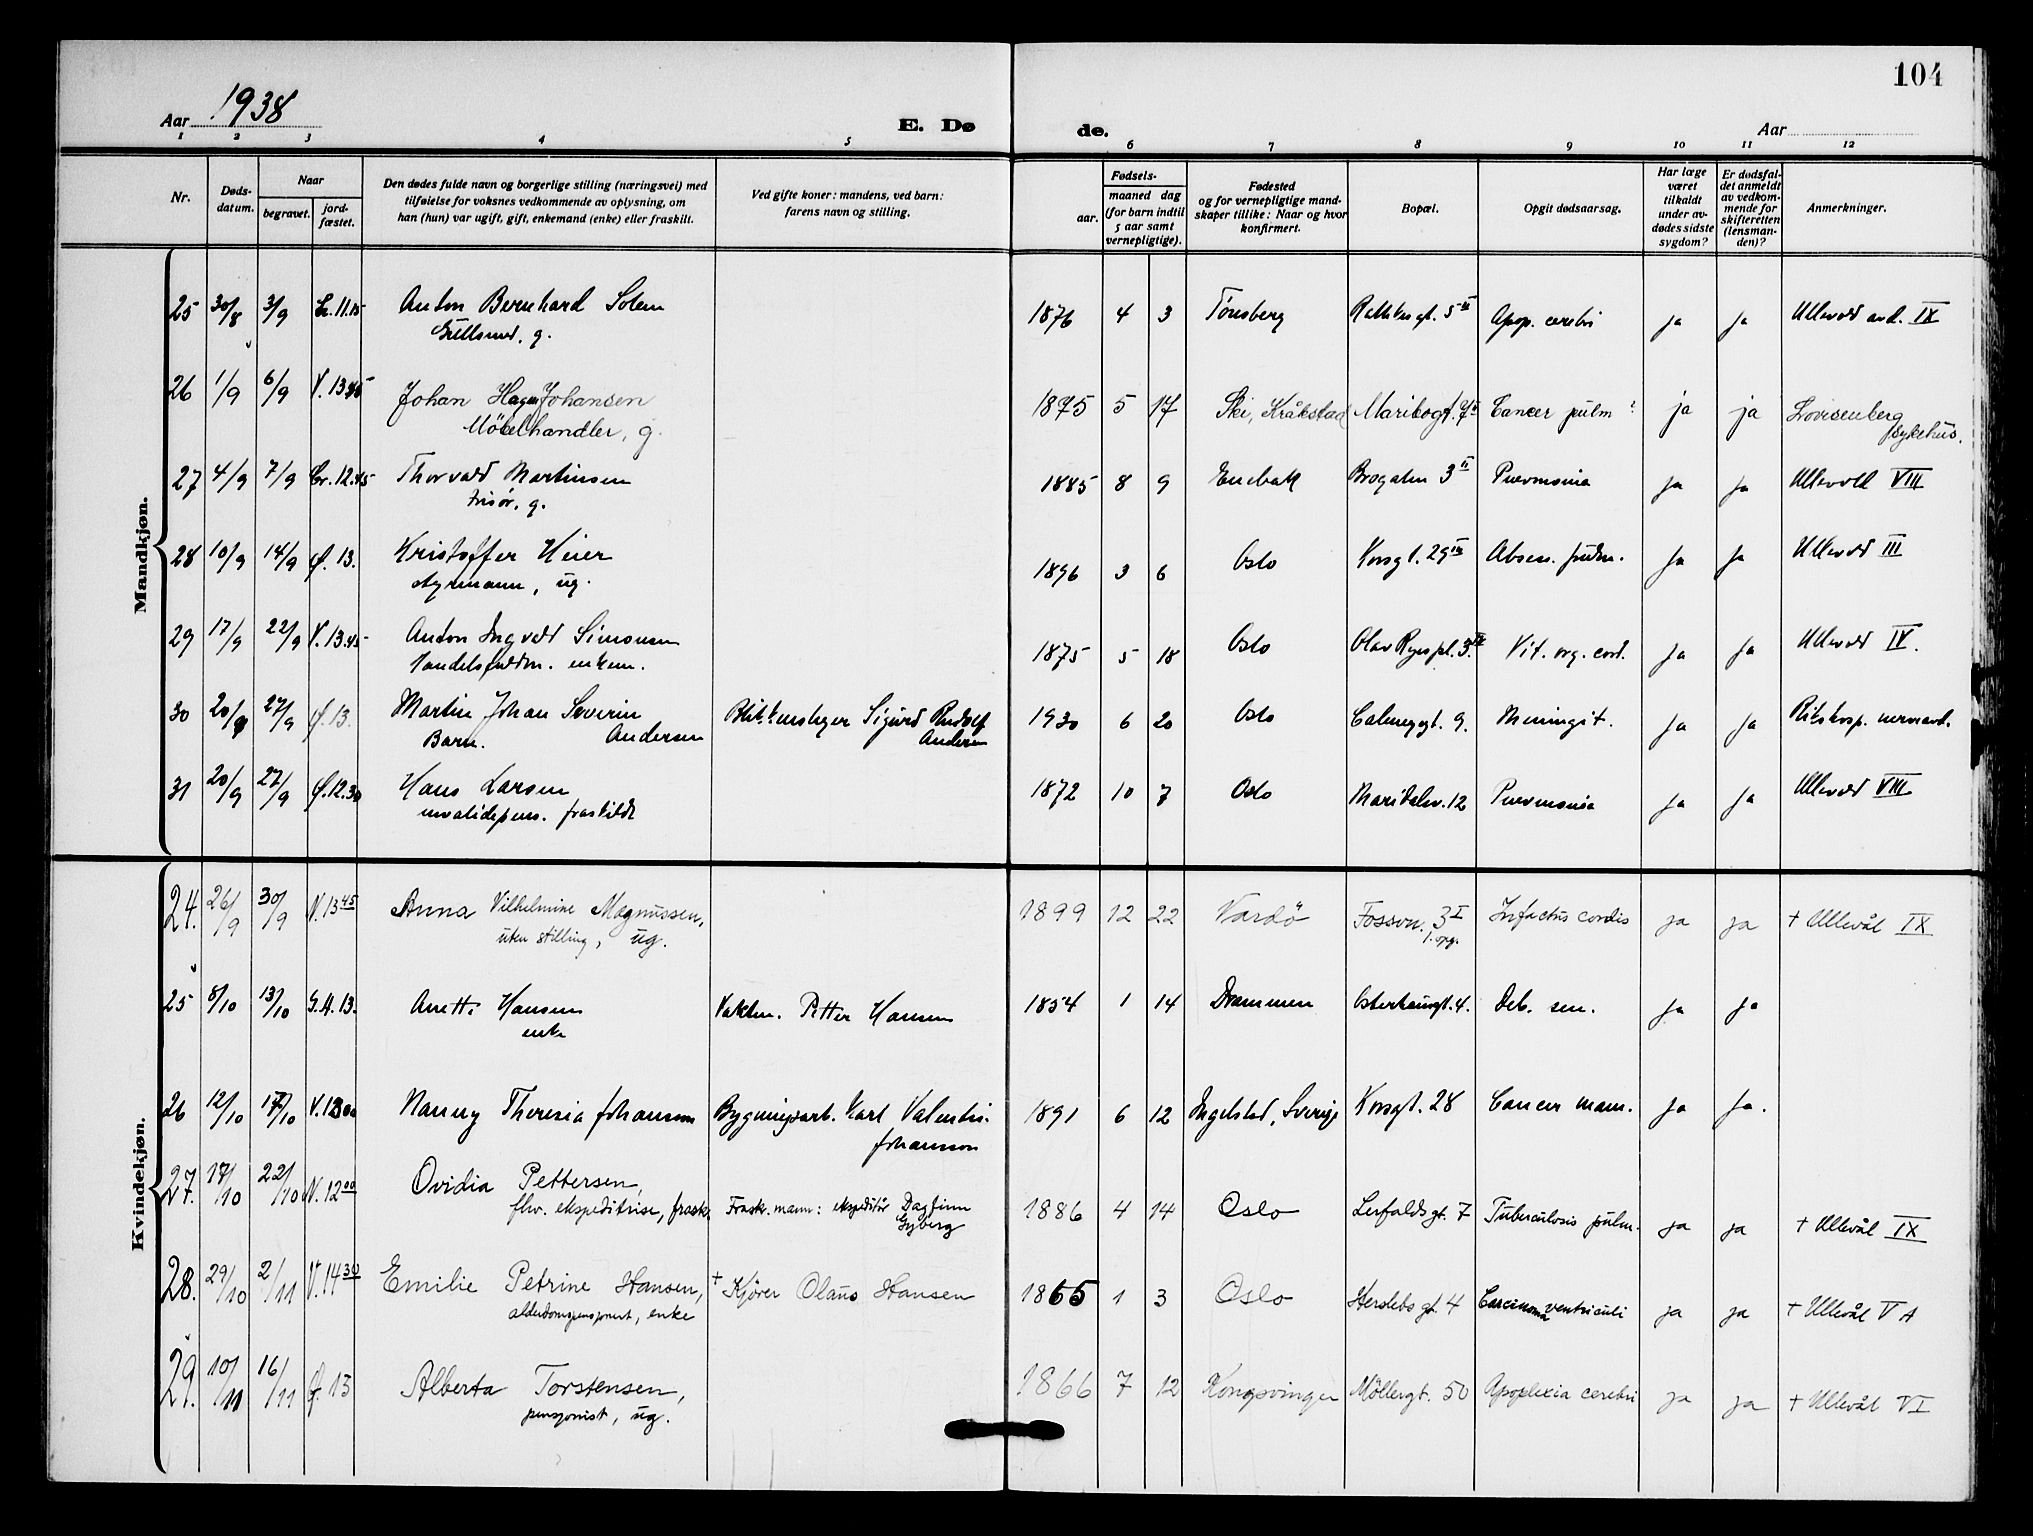 104
Aar 1938
E. Dø
de.
Aar
1 2 3 4 5 6 7 8 9 10 11 12
Nr.
Døds-
datum.
Naar
begravet.
jord-
fæstet.
Den dødes fulde navn og borgerlige stilling (næringsvei) med
tilføielse for voksnes vedkommende av oplysning, om
han (hun) var ugift, gift, enkemand (enke) eller fraskilt.
Ved gifte koner: mandens, ved barn:
farens navn og stilling.
Fødsels-
aar.
maaned dag
(for barn indtil
5 aar samt
vernepligtige).
Fødested
og for vernepligtige mand-
skaper tillike: Naar og hvor
konfirmert.
Bopæl.
Opgit dødsaarsag.
Har læge
været
tilkaldt
under av-
dødes sidste
sygdom?
Er dødsfal-
det anmeldt
av vedkom-
mende for
skifteretten
(lensman-
den)?
Anmerkninger.
Mandkjøn.
25 30/8 3/9 Anton Bernhard Solem 1876 4 3 Tønsberg 5 III Apop. cerebri ja ja Ullevold avd. IX
Gullsmed, g.
26 1/9 6/9 V. 13.45 Johan Hagen Johansen 1875 5 17 Ski, Kråkstad Maribogt. Cancer pulm ? ja ja Lovisenberg
Möbelhandler, g. sykehus.
27 4/9 7/9 Cr. 12.45 Thorvald Martinsen 1885 8 9 Enebak Brogaten 3 II Pneumonia ja ja Ullevold VIII
frisør, g.
28 10/9 14/9 Ø. 13. Kristoffer Heier 1896 3 6 Oslo Korsgt. 29 III Absces. pulm. ja ja Ullevold III
styrmann, ug.
29 17/9 22/9 V. 13.45 Anton Ingvald Simonsen 1875 5 18 Oslo Olav Ryes pl. 3. Vit. org. cord. ja ja Ullevold IV.
Handelsfuldm. enkem.
30 20/9 27/9 Ø. 13. Martin Johan Severin Blikkenslager Sigurd Rudolf 1930 6 20 Oslo Calmeygt. 9. Meningit. ja ja Rikshosp. nerveavd.
Barn. Andersen Andersen
31 20/9 27/9 Ø. 12.30 Hans Larsen 1872 10 7 Oslo Maridalsv. 12 Pneumonia ja ja Ullevold VIII
invalidepens. fraskildt
Kvindekjøn.
24. 26/9 30/9 V. 13 45 Anna Vilhelmine Magnussen, 1899 12 22 Vardö Fossvn. 3 I Infactus cordis ja ja + Ullevål IX
uten stilling, ug. 1. opg.
25 8/10 13/10 G.A. 13. Anette Hansen Vaktm. Petter Hansen 1854 1 14 Drammen Osterhausgt. 4. Deb. sen. ja ja
enke
26 12/10 17/10 V. 1300 Nanny Theresia Johansson Bygningsarb. Karl Valentin 1891 6 12 Ingelstad, Sverige Korsgt. 28 Cancer mam. ja ja.
Johansson
27. 17/10 22/10 N. 12 00 Ovidia Pettersen, 1886 4 14 Oslo Lerfaldsgt. 7 Tuberculosis pulm. ja ja + Ullevål IX
fhv. ekspeditrise, frask. Frask. mann: ekspeditör Dagfinn
Gyberg
28. 29/10 2/11 V. 14 30 Emilie Petrine Hansen, + Kjörer Olaus Hansen 1865 1 3 Oslo Herslebs gt. 4 Carcinoma ventriculi ja ja + Ullevål V A
alderdomspensjonist, enke
29. 10/11 16/11 Ø. 13 Alberta Torstensen, 1866 7 12 Kongsvinger Möllergt. 50 Apoplexia cerebri ja ja + Ullevål VI
pensjonist, ug.